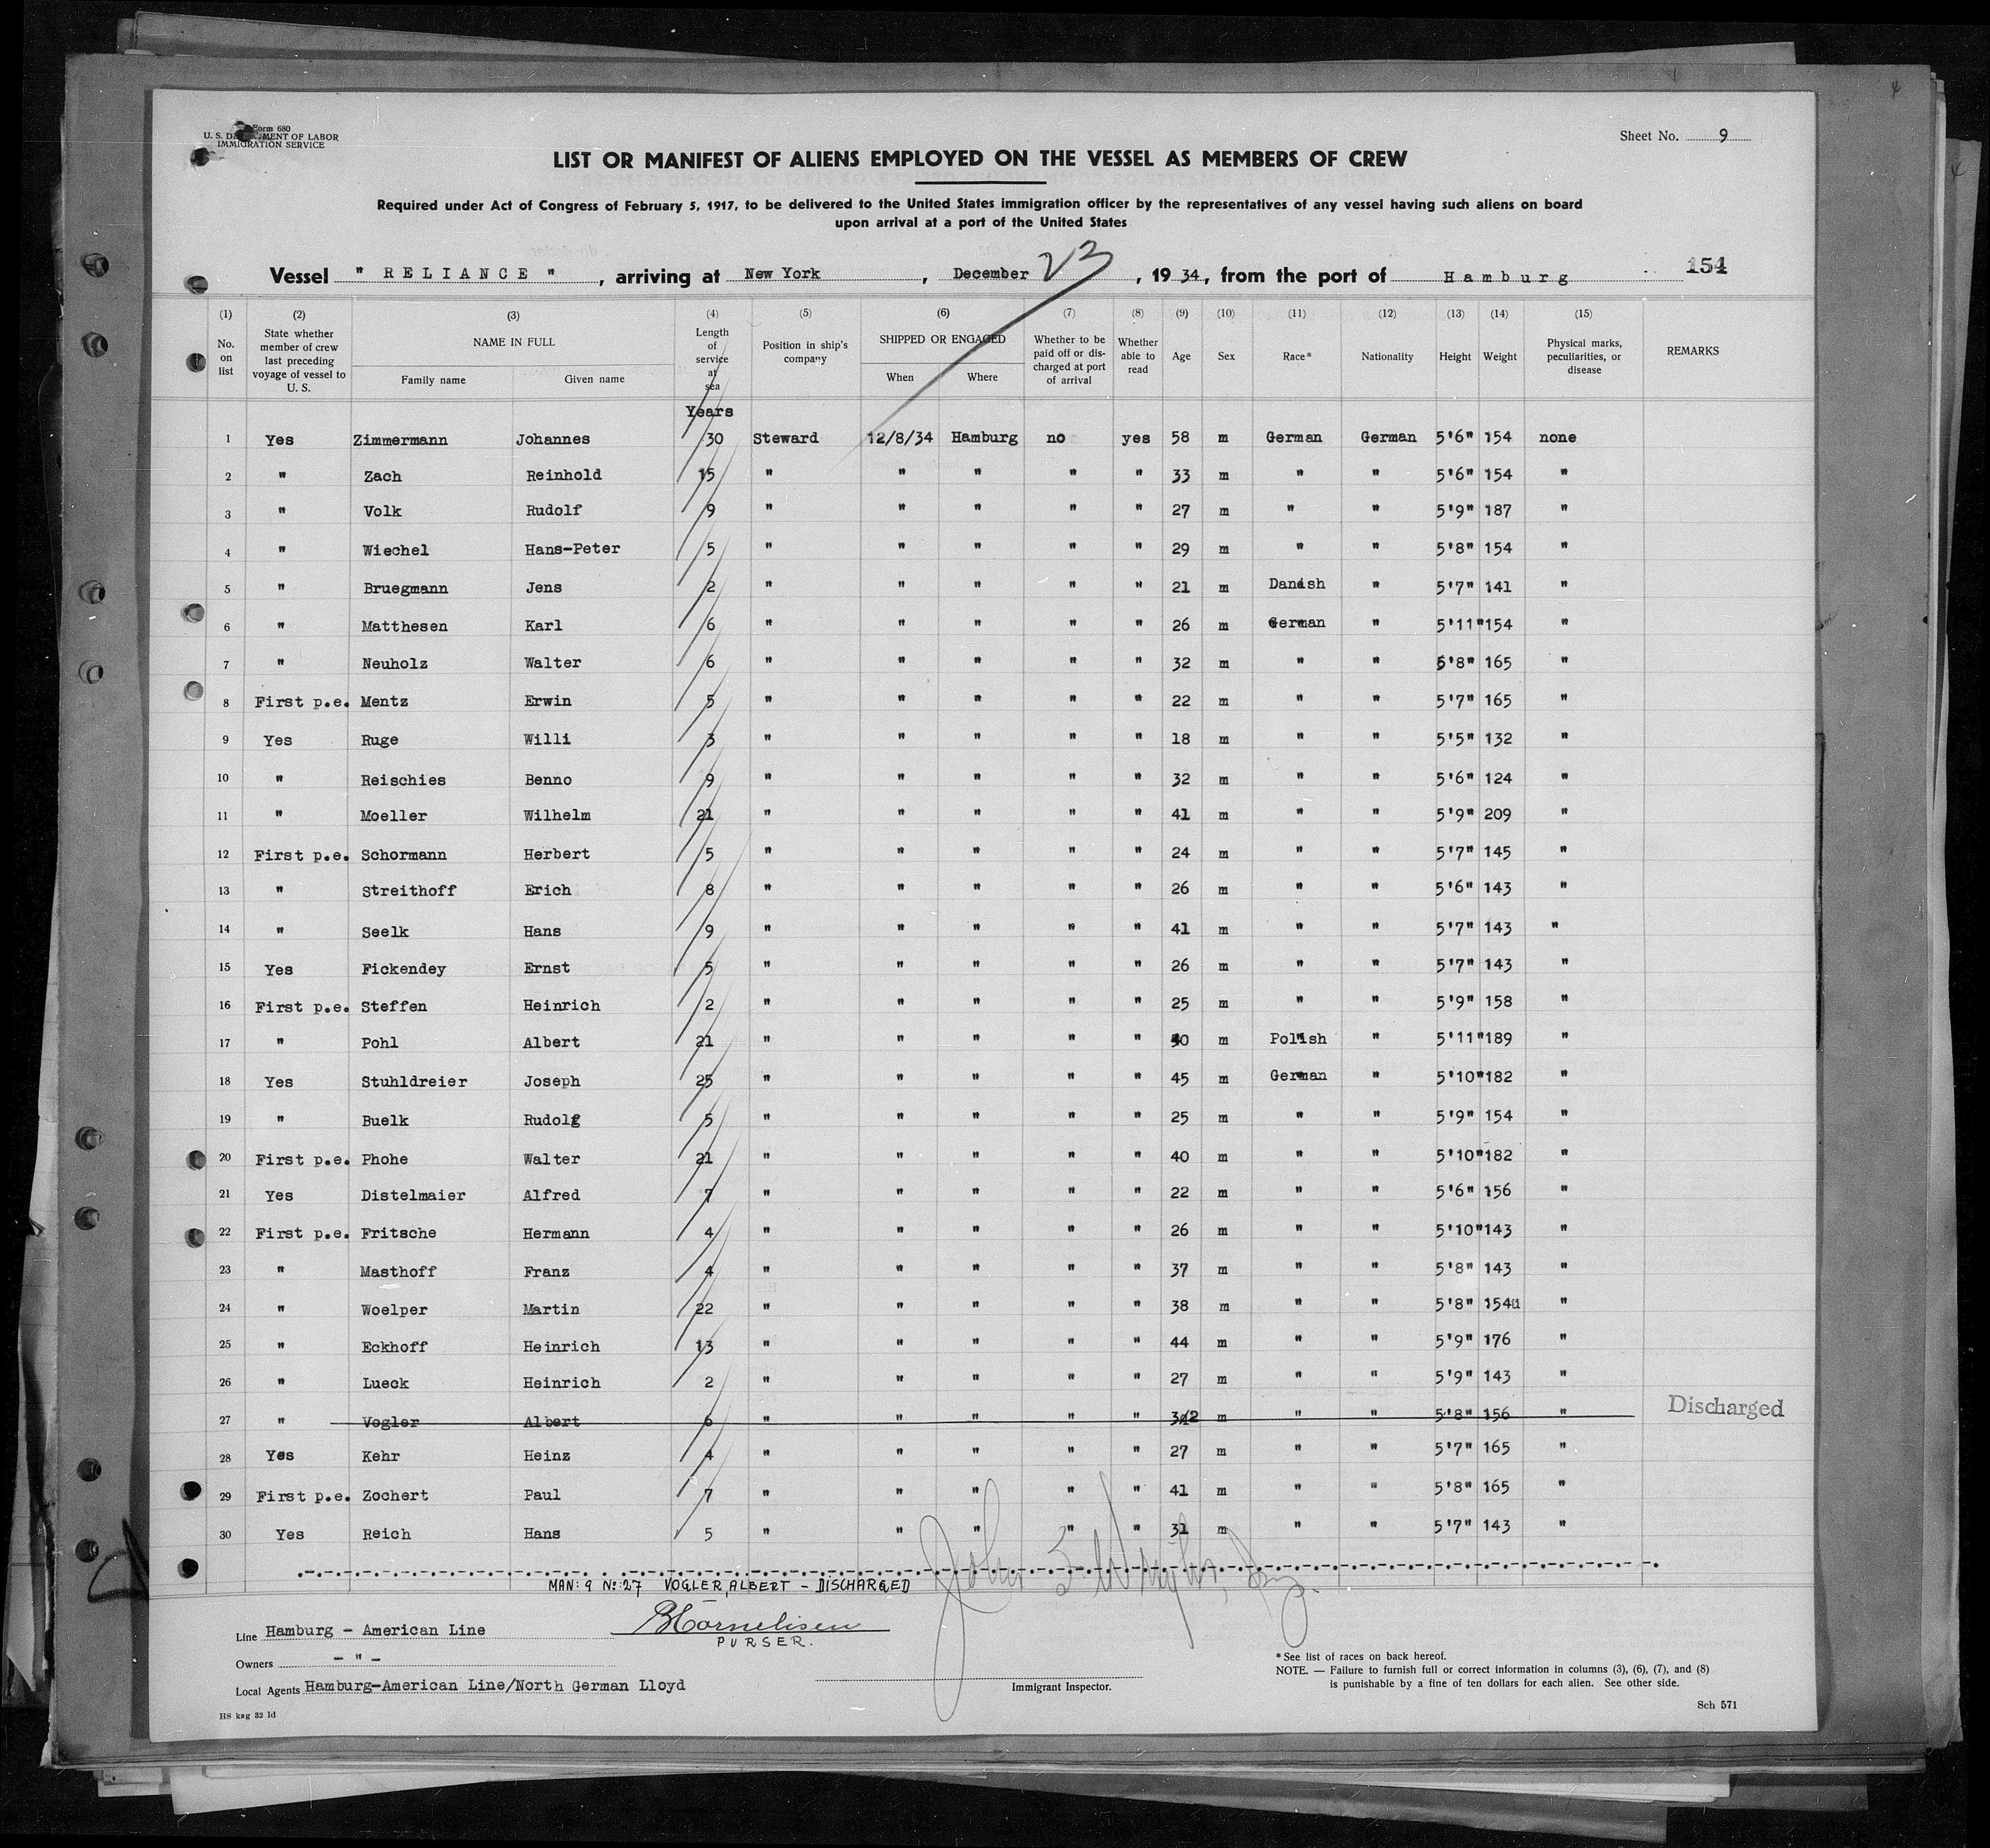 Form 680
U. S. DEPARTMENT OF LABOR
IMMIGRATION SERVICE
Sheet No. 9
LIST OR MANIFEST OF ALIENS EMPLOYED ON THE VESSEL AS MEMBERS OF CREW
Required under Act of Congress of February 5, 1917, to be delivered to the United States immigration officer by the representatives of any vessel having such aliens on board
upon arrival at a port of the United States
Vessel " RELIANCE ", arriving at New York, December 23, 1934, from the port of Hamburg 154
(1) No. on list (2) State whether member of crew last preceding voyage of vessel to U. S. (3) NAME IN FULL Family name Given name (4) Length of service at sea (5) Position in ship's company (6) SHIPPED OR ENGAGED When Where (7) Whether to be paid off or discharged at port of arrival (8) Whether able to read (9) Age (10) Sex (11) Race* (12) Nationality (13) Height (14) Weight (15) Physical marks, peculiarities, or disease REMARKS
Years
1 Yes Zimmermann Johannes 30 Steward 12/8/34 Hamburg no yes 58 m German German 5'6" 154 none
2 " Zach Reinhold 15 " " " " " 33 m " " 5'6" 154 "
3 " Volk Rudolf 9 " " " " " 27 m " " 5'9" 187 "
4 " Wiechel Hans-Peter 5 " " " " " 29 m " " 5'8" 154 "
5 " Bruegmann Jens 2 " " " " " 21 m Danish " 5'7" 141 "
6 " Matthesen Karl 6 " " " " " 26 m German " 5'11" 154 "
7 " Neuholz Walter 6 " " " " " 32 m " " 5'8" 165 "
8 First p.e. Mentz Erwin 5 " " " " " 22 m " " 5'7" 165 "
9 Yes Ruge Willi 3 " " " " " 18 m " " 5'5" 132 "
10 " Reischies Benno 9 " " " " " 32 m " " 5'6" 124 "
11 " Moeller Wilhelm 21 " " " " " 41 m " " 5'9" 209 "
12 First p.e. Schormann Herbert 5 " " " " " 24 m " " 5'7" 145 "
13 " Streithoff Erich 8 " " " " " 26 m " " 5'6" 143 "
14 " Seelk Hans 9 " " " " " 41 m " " 5'7" 143 "
15 Yes Fickendey Ernst 5 " " " " " 26 m " " 5'7" 143 "
16 First p.e. Steffen Heinrich 2 " " " " " 25 m " " 5'9" 158 "
17 " Pohl Albert 21 " " " " " 40 m Polish " 5'11" 189 "
18 Yes Stuhldreier Joseph 25 " " " " " 45 m German " 5'10" 182 "
19 " Buelk Rudolf 5 " " " " " 25 m " " 5'9" 154 "
20 First p.e. Phohe Walter 21 " " " " " 40 m " " 5'10" 182 "
21 Yes Distelmaier Alfred 7 " " " " " 22 m " " 5'6" 156 "
22 First p.e. Fritsche Hermann 4 " " " " " 26 m " " 5'10" 143 "
23 " Masthoff Franz 4 " " " " " 37 m " " 5'8" 143 "
24 " Woelper Martin 22 " " " " " 38 m " " 5'8" 154 "
25 " Eckhoff Heinrich 13 " " " " " 44 m " " 5'9" 176 "
26 " Lueck Heinrich 2 " " " " " 27 m " " 5'9" 143 "
27 " Vogler Albert 6 " " " " " m " " 5'8" 156 " Discharged
28 Yes Kehr Heinz 4 " " " " " 27 m " " 5'7" 165 "
29 First p.e. Zochert Paul 7 " " " " " 41 m " " 5'8" 165 "
30 Yes Reich Hans 5 " " " " " 31 m " " 5'7" 143 "
MAN: 9 No: 27 VOGLER, ALBERT - DISCHARGED
Line Hamburg - American Line
BCornelisen
PURSER.
Owners - " -
Local Agents Hamburg-American Line/North German Lloyd
Immigrant Inspector.
* See list of races on back hereof.
NOTE. — Failure to furnish full or correct information in columns (3), (6), (7), and (8)
is punishable by a fine of ten dollars for each alien. See other side.
HS kag 32 1d
Sch 571